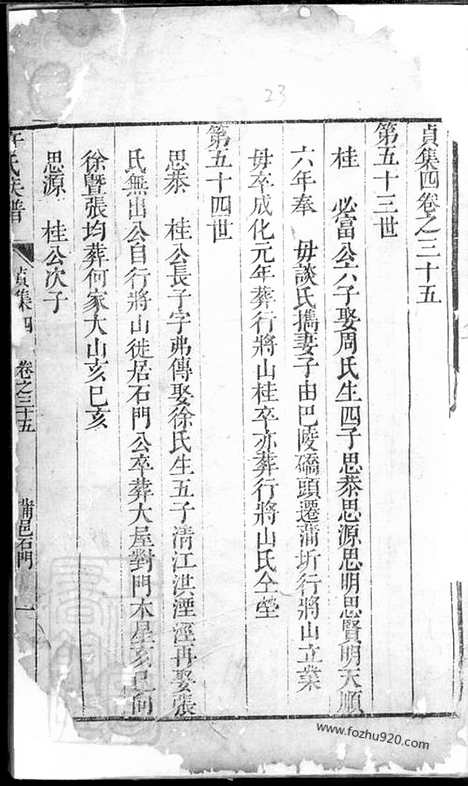 23
貞集四卷之三十五
第五十三世
桂　必富公六子娶周氏生四子思恭思源思明思賢明天順
六年奉　毋談氏攜妻子由巴陵礄頭遷蒲圻行將山立業
毋卒成化元年葬行將山桂卒亦葬行將山氏仝塋
第五十四世
思恭　桂公長子字弗傳娶徐氏生五子清江洪湮淫再娶張
氏無出公自行將山徙居石門公卒葬大屋對門木星亥巳向
徐暨張均葬何家大山亥巳亥
思源　桂公次子
氏族譜　貞集四　卷之三十五　蒲邑石門　一
www.fozhu920.com